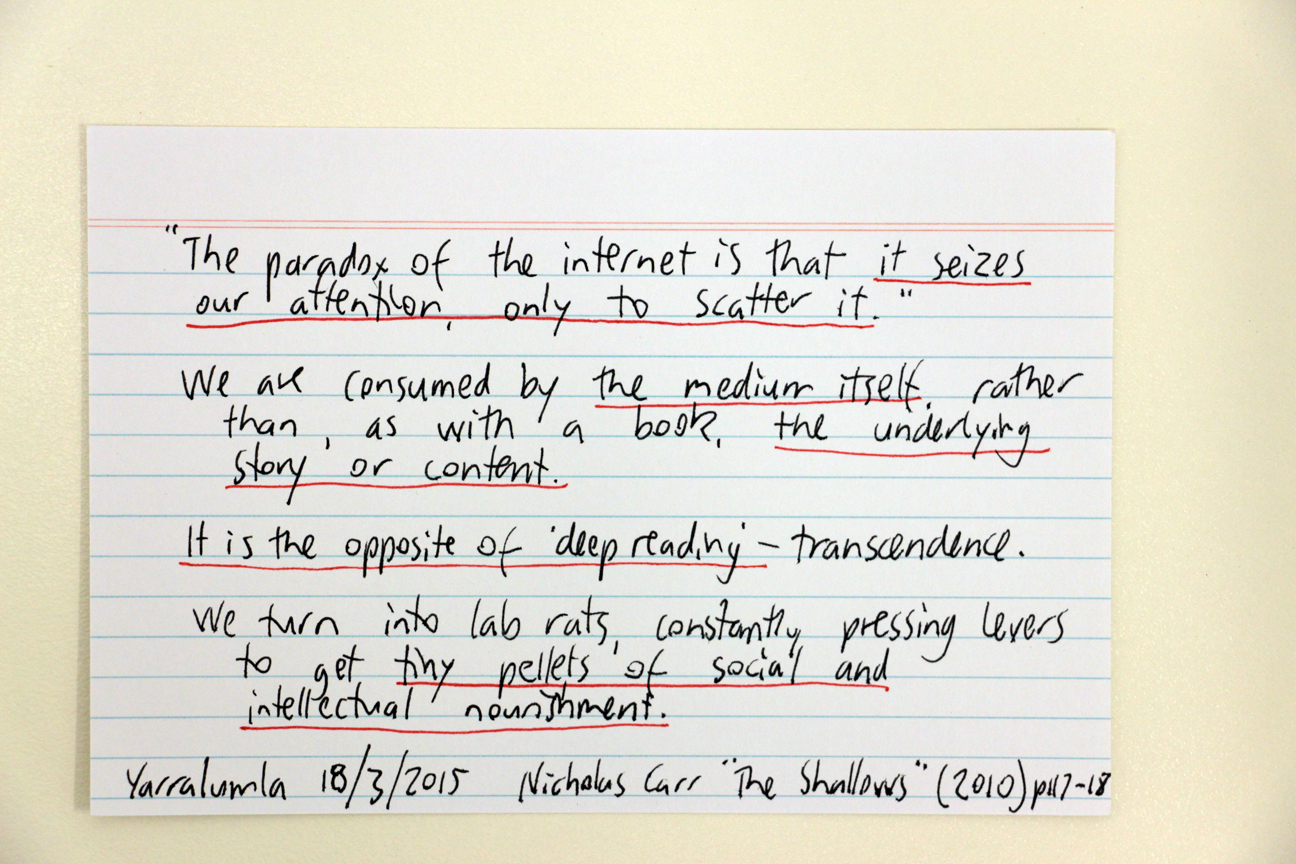 "The paradox of the internet is that it seizes
our attention, only to scatter it."
We are consumed by the medium itself, rather
than, as with a book, the underlying
story or content.
It is the opposite of 'deep reading' – transcendence.
We turn into lab rats, constantly pressing levers
to get tiny pellets of social and
intellectual nourishment.
Yarralumla 18/3/2015 Nicholas Carr "The Shallows" (2010) p117-18